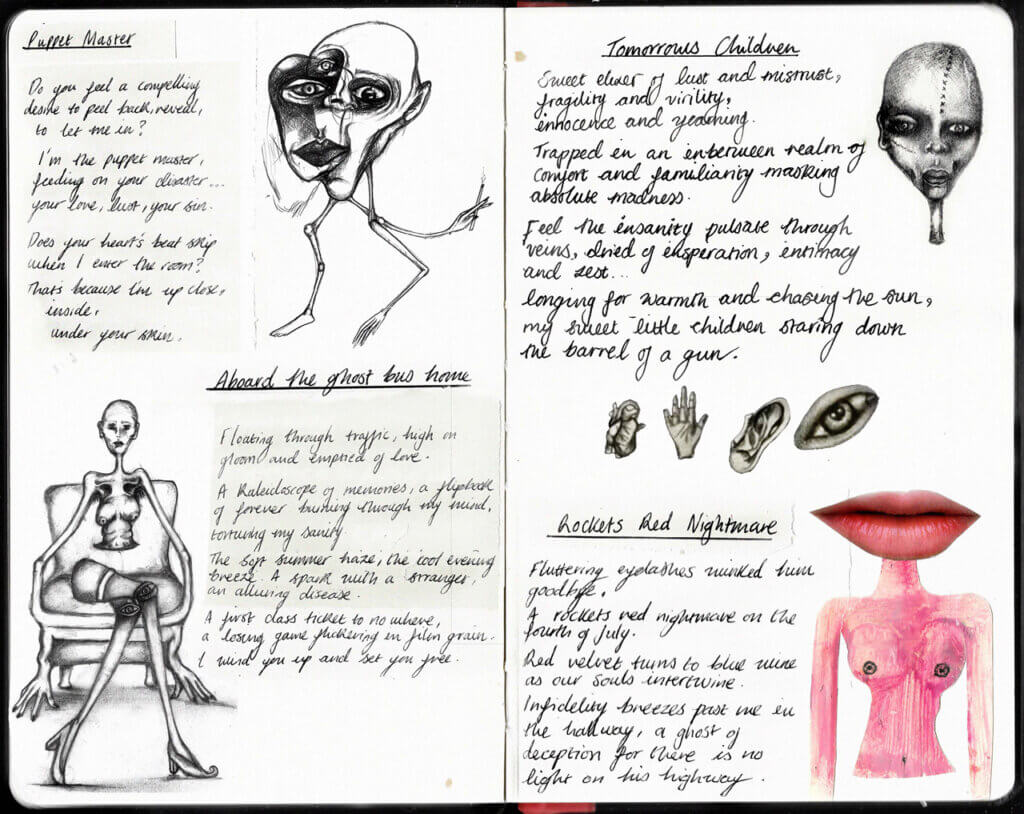 Puppet Master
Do you feel a compelling
desire to peel back, reveal,
to let me in?
I'm the puppet master,
feeding on your disaster...
your love, lust, your sin.
Does your heart's beat skip
when I enter the room?
That's because I'm up close,
inside,
under your skin.
Aboard the ghost bus home
Floating through traffic, high on
gloom and emptied of love.
A Kaleidoscope of memories, a flipbook
of forever burning through my mind,
torturing my sanity
The soft summer haze, the cool evening
breeze. A spark with a stranger,
an alluring disease.
A first class ticket to no where,
a losing game flickering in film grain.
I wind you up and set you free.
Tomorrows Children
Sweet elixer of lust and mistrust,
fragility and virility,
innocence and yearning.
Trapped in an inbetween realm of
comfort and familiarity masking
absolute madness.
Feel the insanity pulsate through
veins, dried of insperation, intimacy
and zest...
longing for warmth and chasing the sun,
my sweet little children staring down
the barrel of a gun.
Rockets Red Nightmare
Fluttering eyelashes winked him
goodbye,
A rockets red nightmare on the
fourth of July.
Red velvet turns to blue wine
as our souls intertwine.
Infidelity breezes past me in
the hallway, a ghost of
deception for there is no
light on his highway.